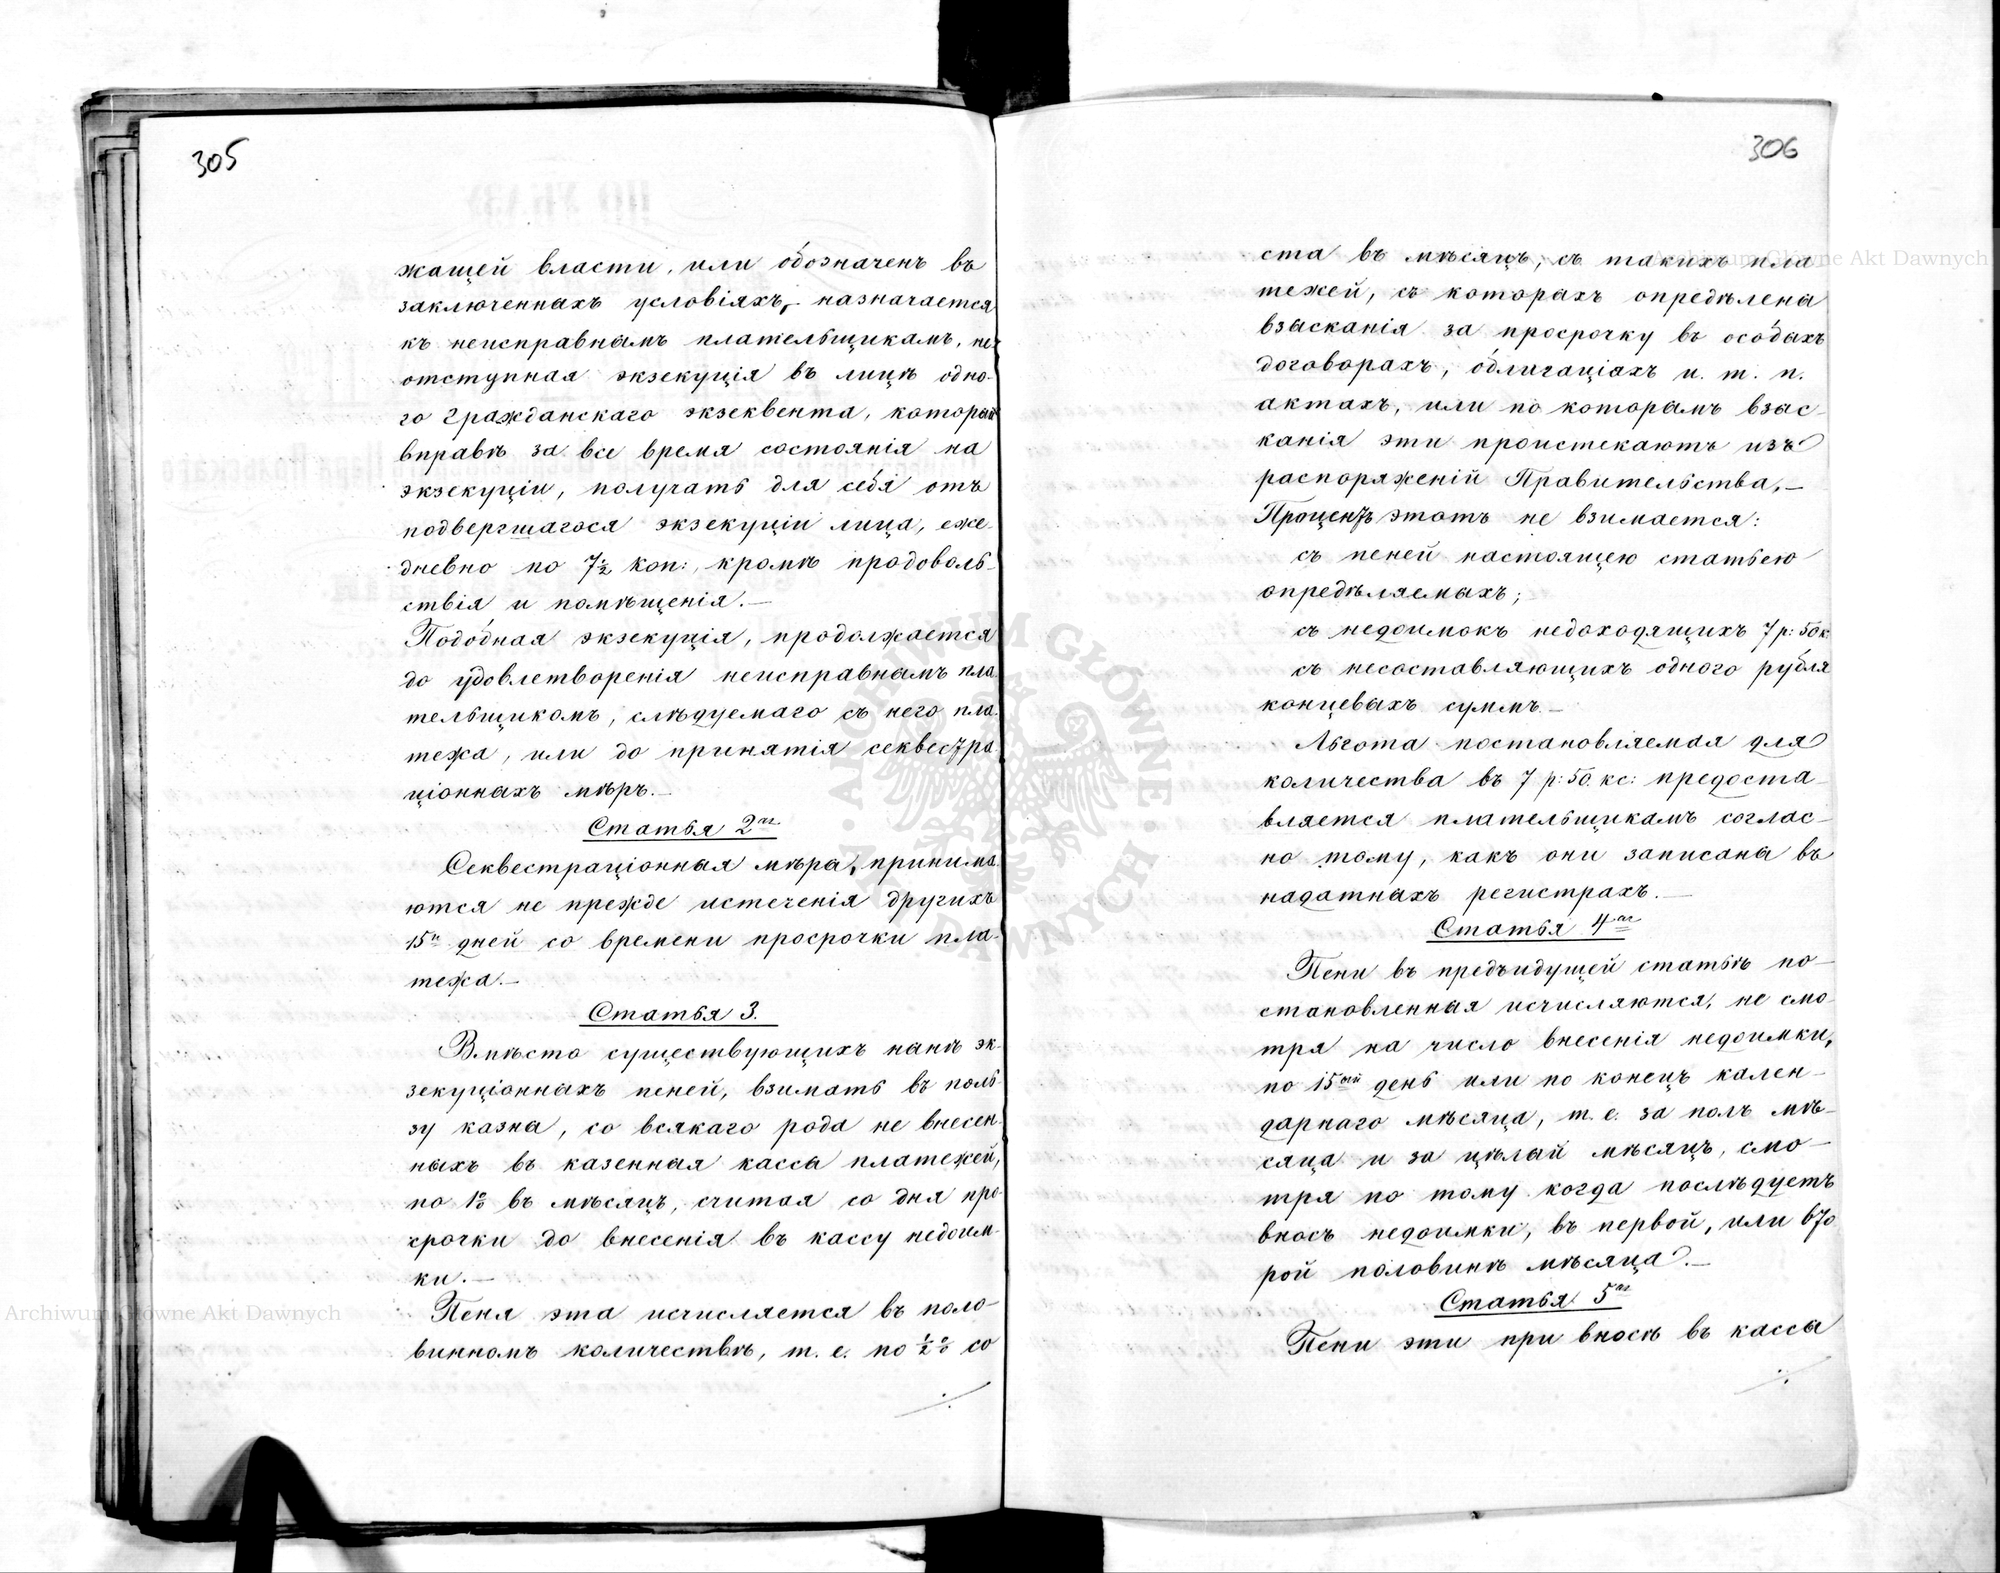 305
жащей власти, или обозначенъ въ
заключенныхъ условіяхъ, назначается
къ неисправнымъ плательщикамъ, не-
отступная экзекуція въ лицѣ одно-
го Гражданскаго экзеквента, который
вправѣ за все время состоянія на
экзекуціи, получать для себя отъ
подвергшагося экзекуціи лица, еже-
дневно по 7½ коп: кромѣ продоволь-
ствія и помѣщенія.—
Подобная экзекуція, продолжается
до удовлетворенія неисправнымъ пла-
тельщикомъ, слѣдуемаго съ него пла-
тежа, или до принятія секвестра-
ціонныхъ мѣръ.—
Статья 2ая
Секвестраціонныя мѣры, принима-
ются не прежде истеченія другихъ
15и дней со времени просрочки пла-
тежа.—
Статья 3.
Вмѣсто существующихъ нынѣ эк-
зекуціонныхъ пеней, взимать въ поль-
зу казны, со всякаго рода не внесен-
ныхъ въ казенныя кассы платежей,
по 1% въ мѣсяцъ, считая со дня про-
срочки до внесенія въ кассу недоим-
ки.—
Пеня эта исчисляется въ поло-
винномъ количествѣ, т. е. по ½% со
./.
306
ста въ мѣсяцъ, съ такихъ пла
тежей, съ которыхъ опредѣлены
взысканія за просрочку въ особыхъ
договорахъ, облигаціяхъ и. т. п.
актахъ, или по которымъ взыс-
канія эти проистекаютъ изъ
распоряженій Правительства.—
Процентъ этотъ не взимается:
съ пеней настоящею статьею
опредѣляемыхъ;
съ недоимокъ недоходящихъ 7 р: 50 к
съ несоставляющихъ одного рубля
концевыхъ суммъ.—
Льгота постановляемая для
количества въ 7 р: 50. кс: предоста-
вляется плательщикамъ соглас-
но тому, какъ они записаны въ
надатныхъ регистрахъ.—
Статья 4ая
Пени въ предъидущей статьѣ по-
становленныя исчисляются, не смо
тря на число внесенія недоимки,
по 15ый день или по конецъ кален-
дарнаго мѣсяца, т. е. за полъ мѣ-
сяца и за цѣлый мѣсяцъ, смо-
тря по тому когда послѣдуетъ
вносъ недоимки, въ первой, или вто
рой половинѣ мѣсяца.—
Статья 5ая
Пени эти при вносѣ въ кассы
./.
Archiwum Główne Akt Dawnych
Archiwum Główne Akt Dawnych
ARCHIWUM GŁÓWNE AKT DAWNYCH